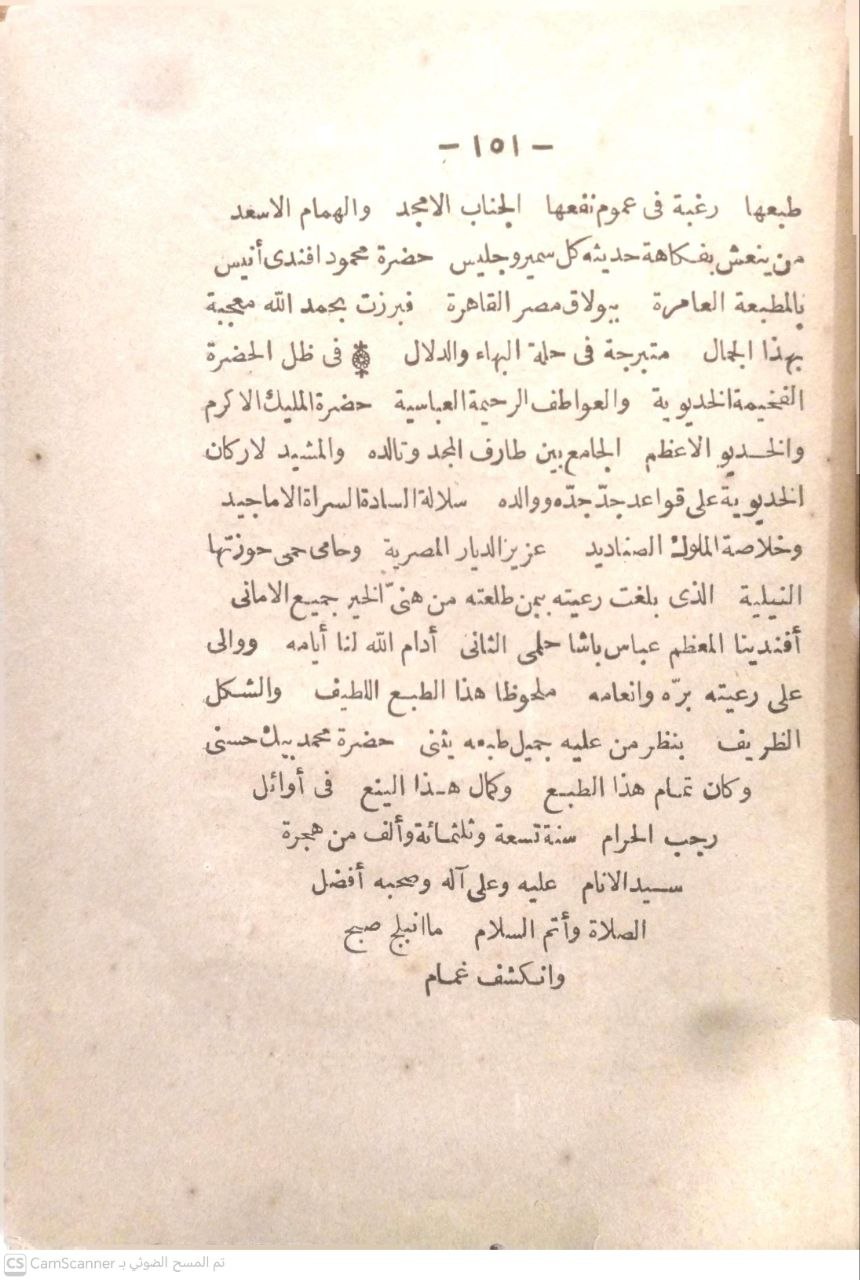 - ١٥١ -
طبعها رغبة فى عموم نفعها الجناب الامجد والهمام الاسعد
من ينعش بفكاهة حديثه كل سمير وجليس حضرة محمود افندى أنيس
بالمطبعة العامرة ببولاق مصر القاهرة فبرزت بحمد الله معجبة
بهذا الجمال متبرجة فى حلة البهاء والدلال فى ظل الحضرة
الفخيمة الخديوية والعواطف الرحيمة العباسية حضرة المليك الاكرم
والخديو الاعظم الجامع بين طارف المجد وتالده والمشيد لاركان
الخديوية على قواعد جدّ جدّه ووالده سلالة السادة السراة الاماجيد
وخلاصة الملوك الصناديد عزيز الديار المصرية وحامى حمى حوزتها
النيلية الذى بلغت رعيته بيمن طلعته من هنىّ الخير جميع الامانى
أفندينا المعظم عباس باشا حلمى الثانى أدام الله لنا أيامه ووالى
على رعيته برّه وانعامه ملحوظا هذا الطبع اللطيف والشكل
الظريف بنظر من عليه جميل طبعه يثنى حضرة محمد بيك حسنى
وكان تمام هذا الطبع وكمال هذا الينع فى أوائل
رجب الحرام سنة تسعة وثلثمائة وألف من هجرة
سيد الانام عليه وعلى آله وصحبه أفضل
الصلاة وأتم السلام ما انبلج صبح
وانكشف غمام
CS CamScanner تم المسح الضوئي بـ